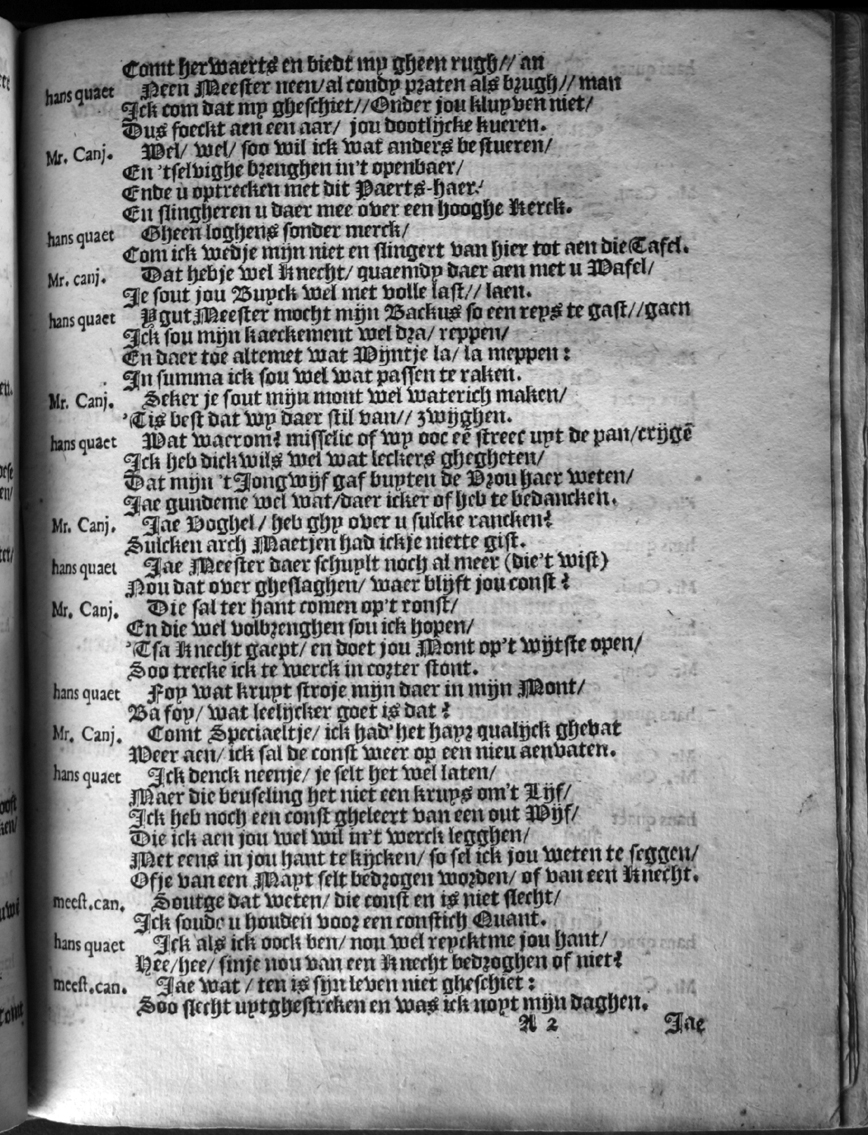 Comt herwaerts en biedt my gheen rugh// an
hans quaet Neen Meester neen/al condy praten als brugh// man
Ick com dat my gheschiet//Onder jou kluyven niet/
Dus soeckt aen een aar/ jou dootlijcke kueren.
Mr. Canj. Wel/ wel/ soo wil ick wat anders bestueren/
En 'tselvighe brenghen in't openbaer/
Ende u optrecken met dit Paerts-haer/
En slingheren u daer mee over een hooghe Kerck.
hans quaet Gheen loghens sonder merck/
Com ick wedje mijn niet en slingert van hier tot aen die Tafel.
Mr. canj. Dat hebje wel Knecht/ quaemdy daer aen met u Wafel/
Je sout jou Buyck wel met volle last// laen.
hans quaet Ygut Meester mocht mijn Backus so een reys te gast//gaen
Ick sou mijn kaeckement wel dra/ reppen/
En daer toe altemet wat Wijntje la/ la meppen:
In summa ick sou wel wat passen te raken.
Mr. Canj. Seker je sout mijn mont wel waterich maken/
'Tis best dat wy daer stil van// zwijghen.
hans quaet Wat waerom? misselic of wy ooc eẽ streec uyt de pan/crijgẽ
Ick heb dickwils wel wat leckers ghegheten/
Dat mijn 't Jongwijf gaf buyten de Vrou haer weten/
Jae gundeme wel wat/daer icker of heb te bedancken.
Mr. Canj. Jae Voghel/ heb ghy over u sulcke rancken?
Sulcken arch Maetjen had ickje niette gist.
hans quaet Jae Meester daer schuylt noch al meer (die't wist)
Nou dat over gheslaghen/ waer blijft jou const?
Mr. Canj. Die sal ter hant comen op't ronst/
En die wel volbrenghen sou ick hopen/
'Tsa Knecht gaept/ en doet jou Mont op't wijtste open/
Soo trecke ick te werck in corter stont.
hans quaet Foy wat kruyt stroje mijn daer in mijn Mont/
Ba foy/ wat leelijcker goet is dat?
Mr. Canj. Comt Speciaeltje/ ick had' het hayr qualijck ghevat
Weer aen/ ick sal de const weer op een nieu aenvaten.
hans quaet Ick denck neenje/ je selt het wel laten/
Maer die beuseling het niet een kruys om't Lijf/
Ick heb noch een const gheleert van een out Wijf/
Die ick aen jou wel wil in't werck legghen/
Met eens in jou hant te kijcken/ so sel ick jou weten te seggen/
Ofje van een Mayt selt bedrogen worden/ of van een Knecht.
meest.can. Soutge dat weten/ die const en is niet slecht/
Ick soude u houden voor een constich Quant.
hans quaet Ick als ick oock ben/ nou wel reycktme jou hant/
Hee/hee/ sinje nou van een Knecht bedroghen of niet?
meest.can. Jae wat/ ten is sijn leven niet gheschiet:
Soo slecht uytghestreken en was ick noyt mijn daghen.
A 2 Jae